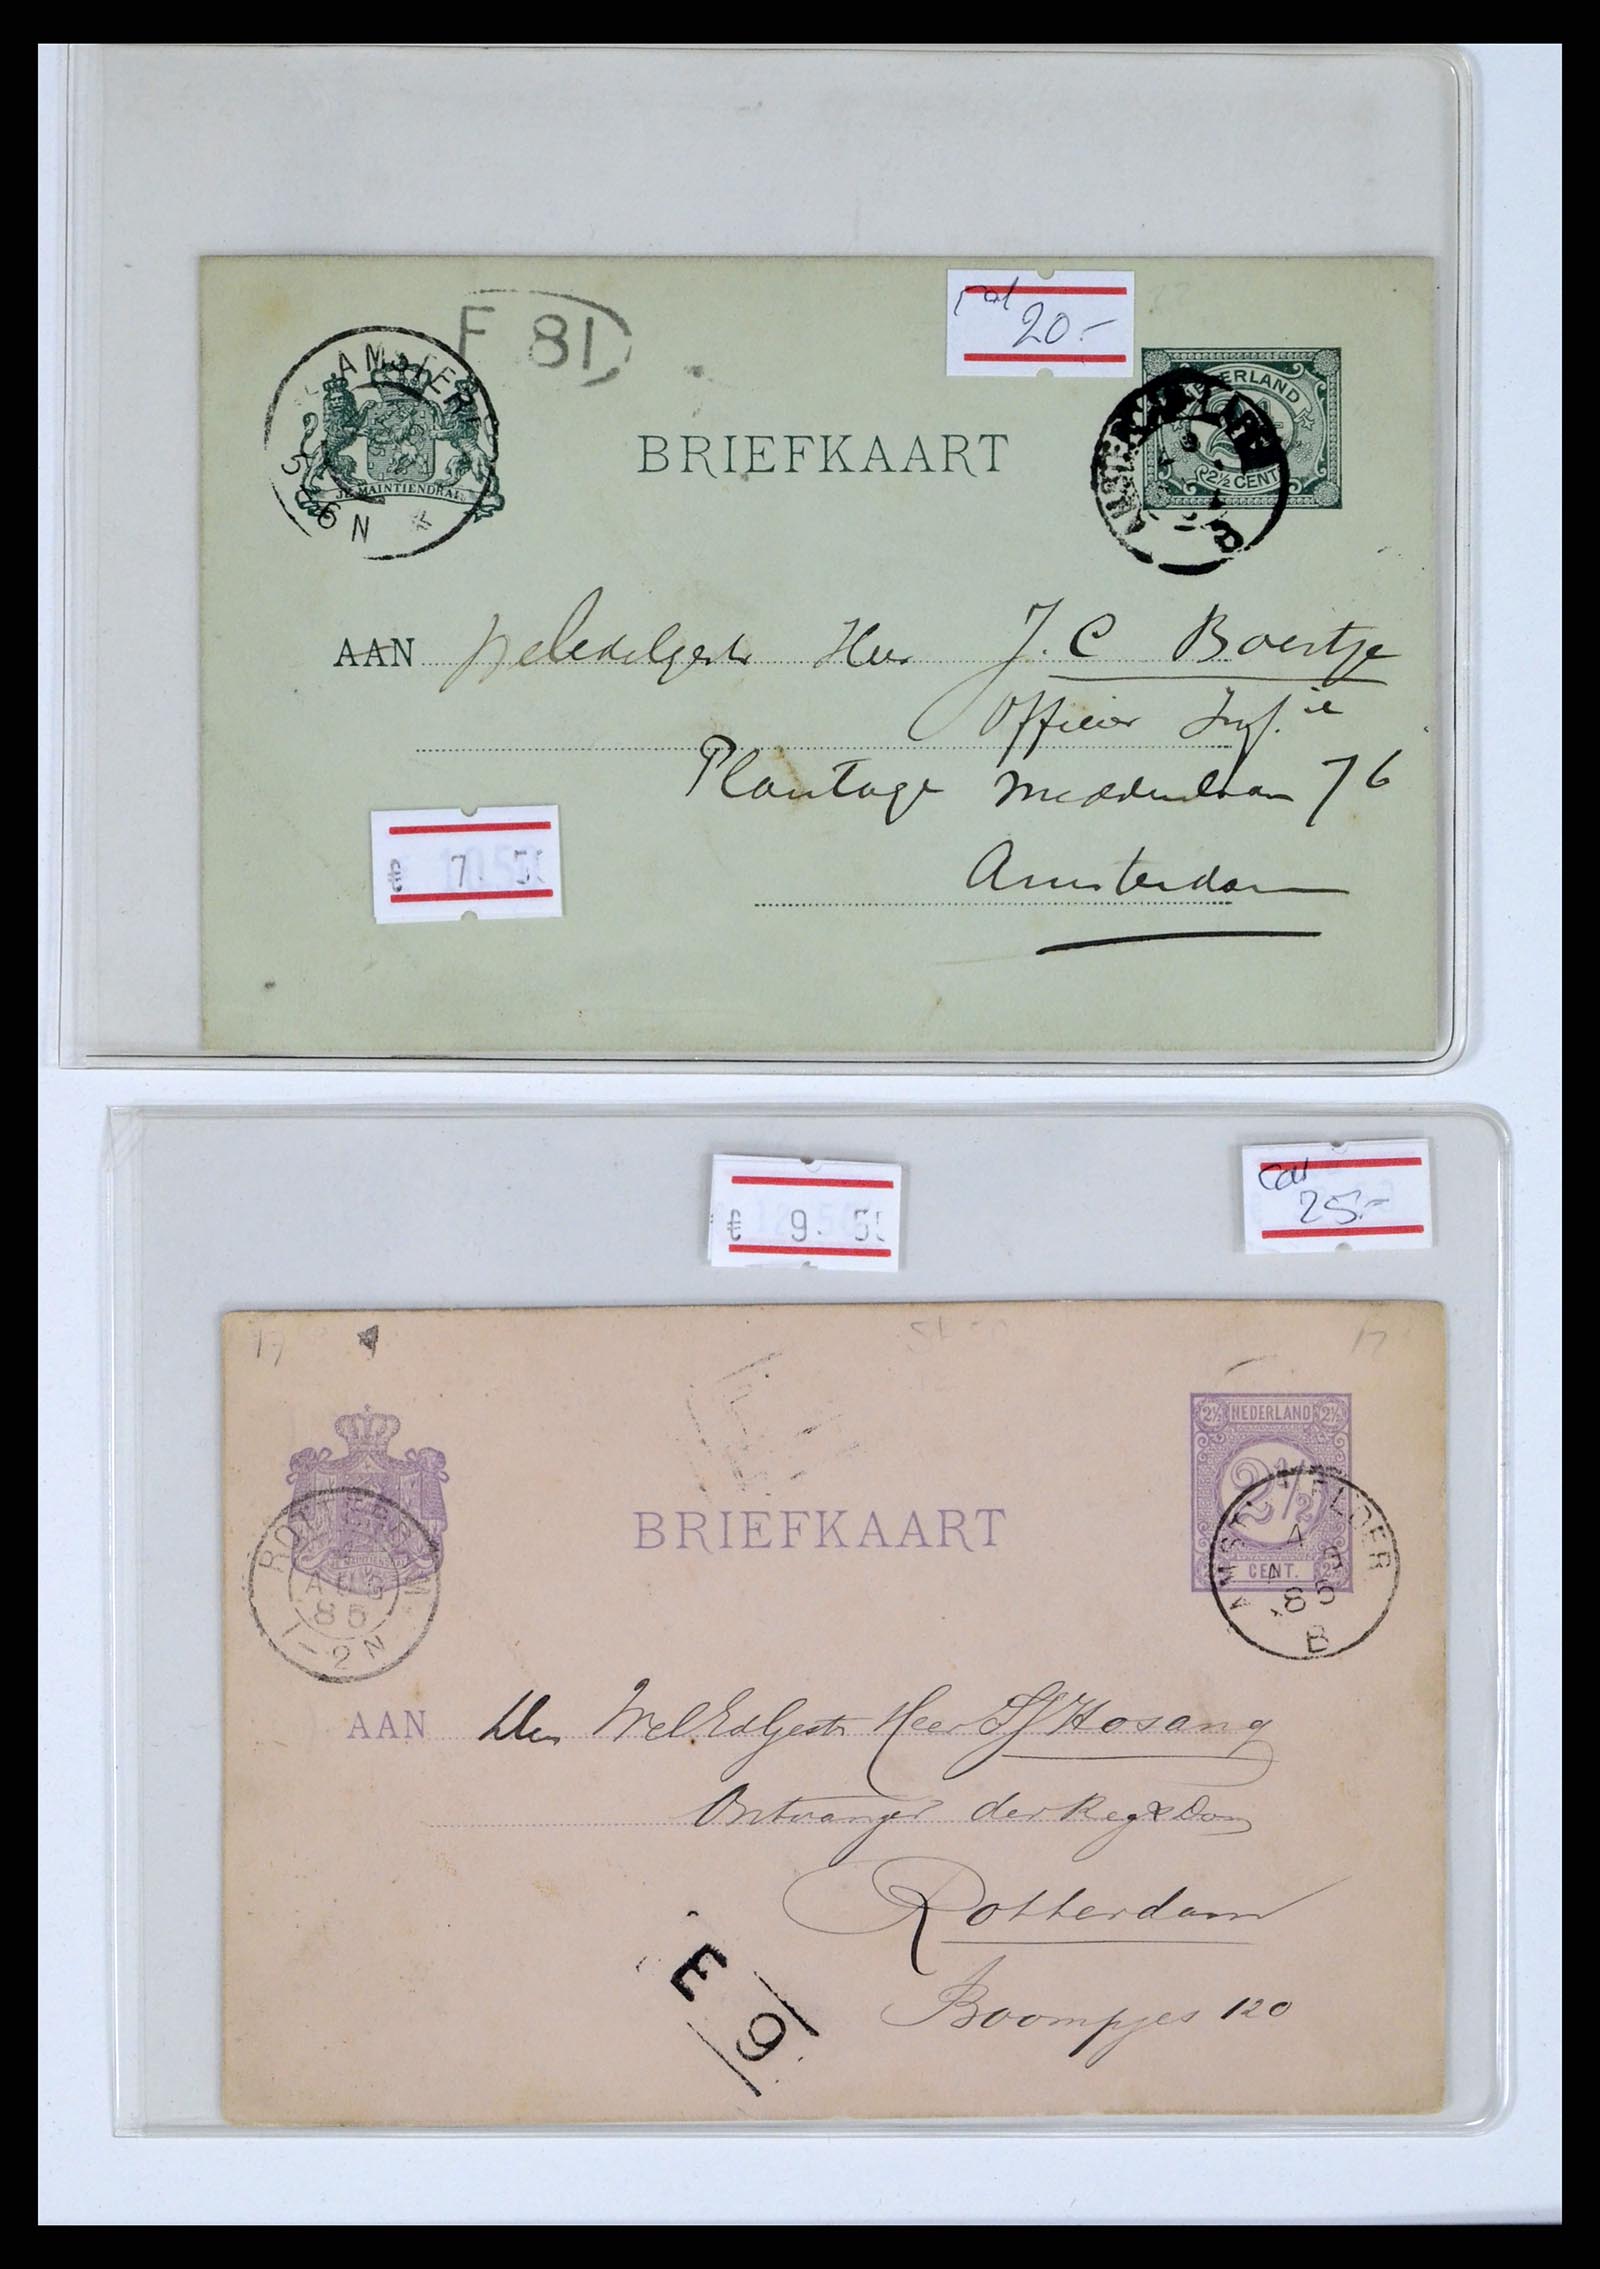 F 81
cat
20.-
AMSTER
5-6 N
JE MAINTIENDRAI
BRIEFKAART
NEDERLAND
2½ CENT
AAN Weledelgestr Heer J. C Boertje
Officier Inf.ie
Plantage Middenlaan 76
€ 7.50
Amsterdam
cat
25.-
€ 9.50
17
17
2½ NEDERLAND 2½
2½
CENT.
BRIEFKAART
ROTTERDAM
AUG
85
1-2N
4
85
B
AAN Den WelEdGestr Heer Hosang
Ontvanger der Reg & Dom
Rotterdam
Boompjes 120
E
9